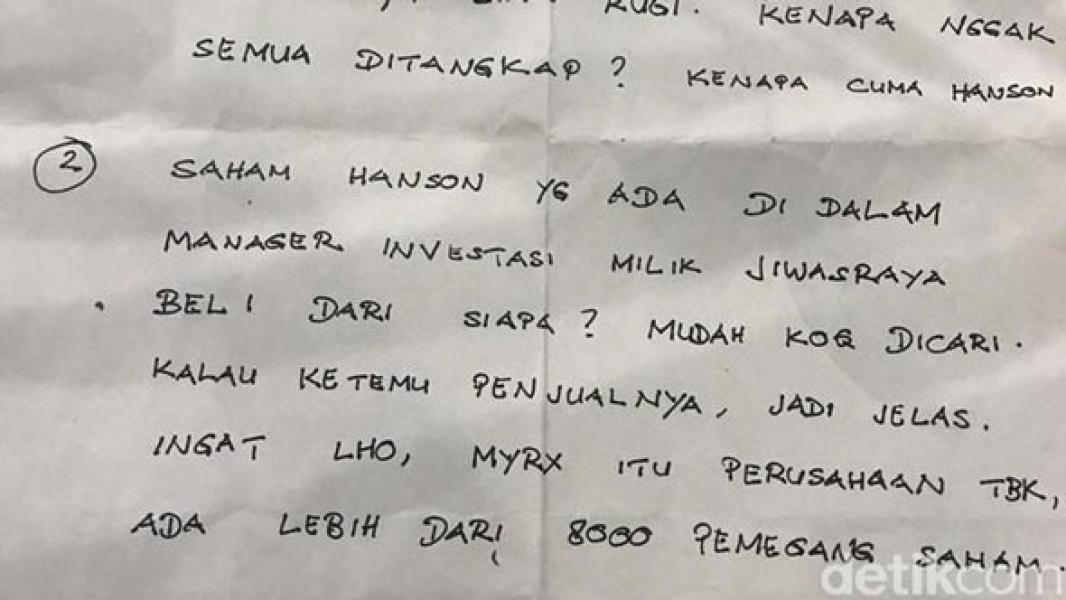 RUGI. KENAPA NGGAK
SEMUA DITANGKAP? KENAPA CUMA HANSON
2 SAHAM HANSON YG ADA DI DALAM
MANAGER INVESTASI MILIK JIWASRAYA
BELI DARI SIAPA? MUDAH KOQ DICARI.
KALAU KETEMU PENJUALNYA, JADI JELAS.
INGAT LHO, MYRX ITU PERUSAHAAN TBK,
ADA LEBIH DARI 8000 PEMEGANG SAHAM.
detikcom